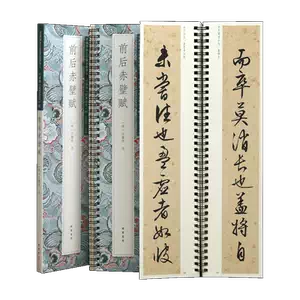 前后赤壁赋
前后赤壁赋
未嘗往也盈虛者如彼
而卒莫消長也蓋將自